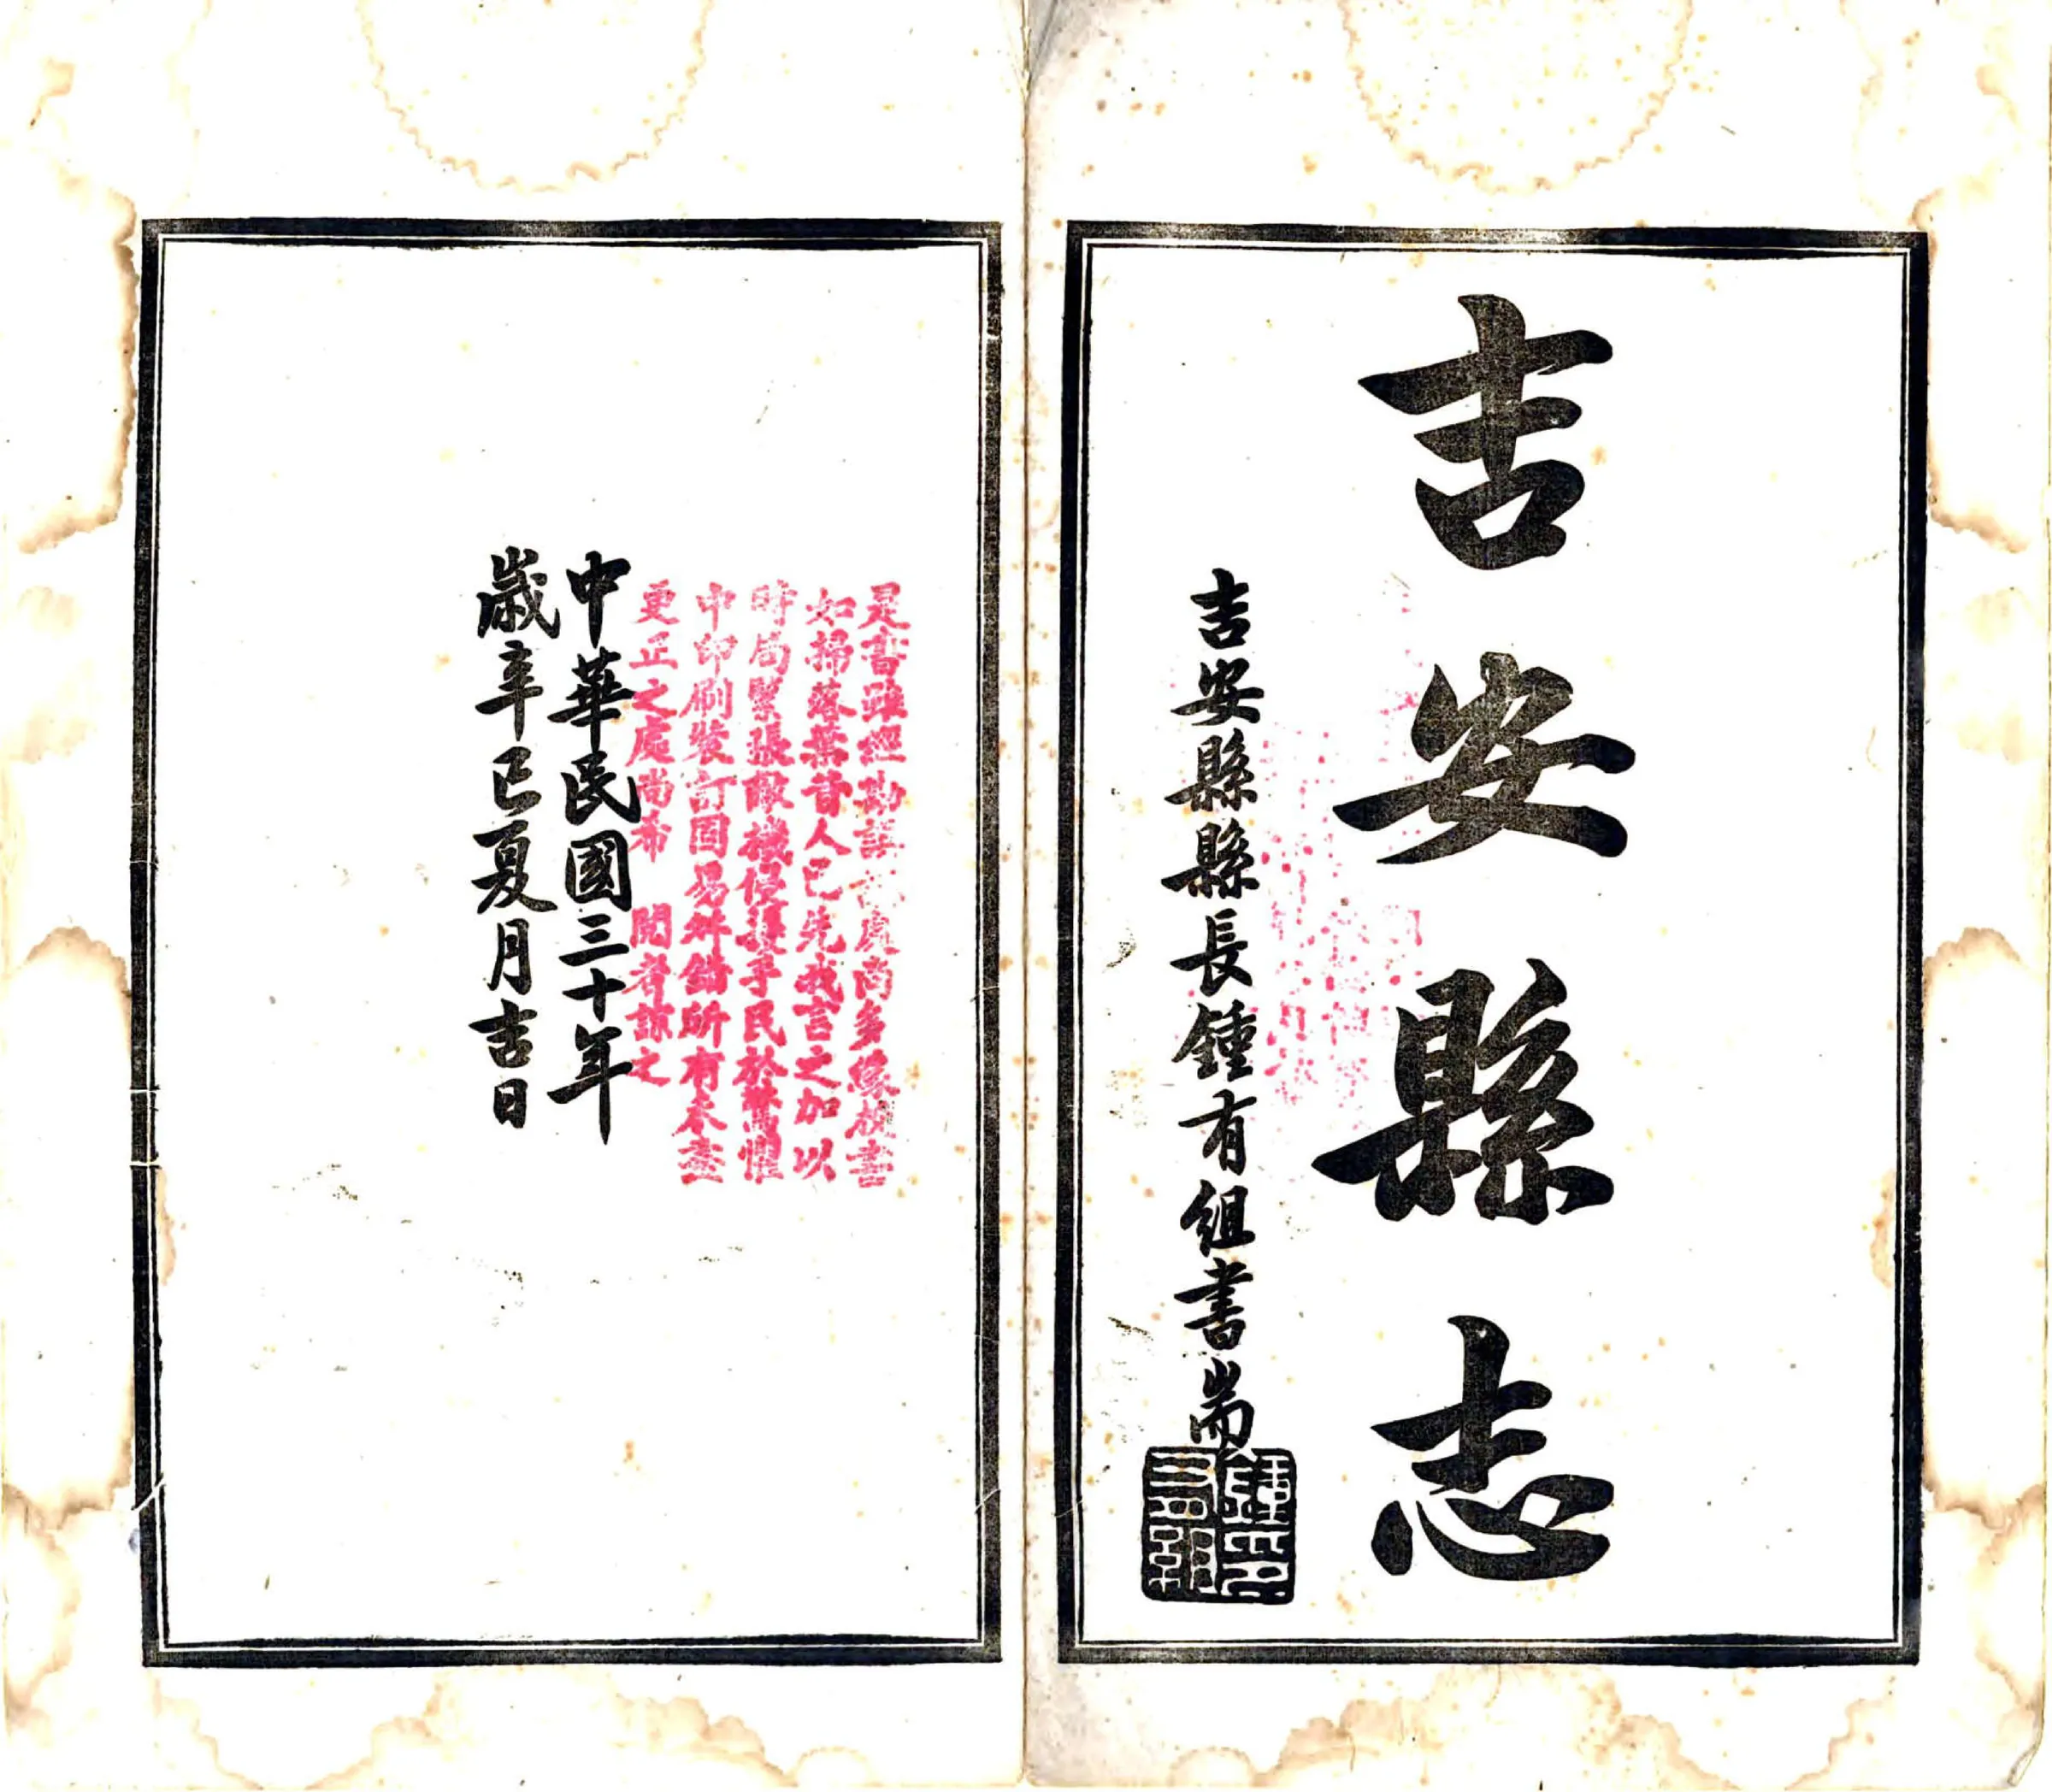 吉安縣志
吉安縣縣長鍾有組書耑
是書雖經勘誤處尚多緣校書
如掃落葉昔人已先我言之加以
時局緊張敵機侵擾手民於驚懼
中印刷裝訂固易舛錯所有未盡
更正之處尚希 閱者諒之
中華民國三十年
歲辛巳夏月吉日